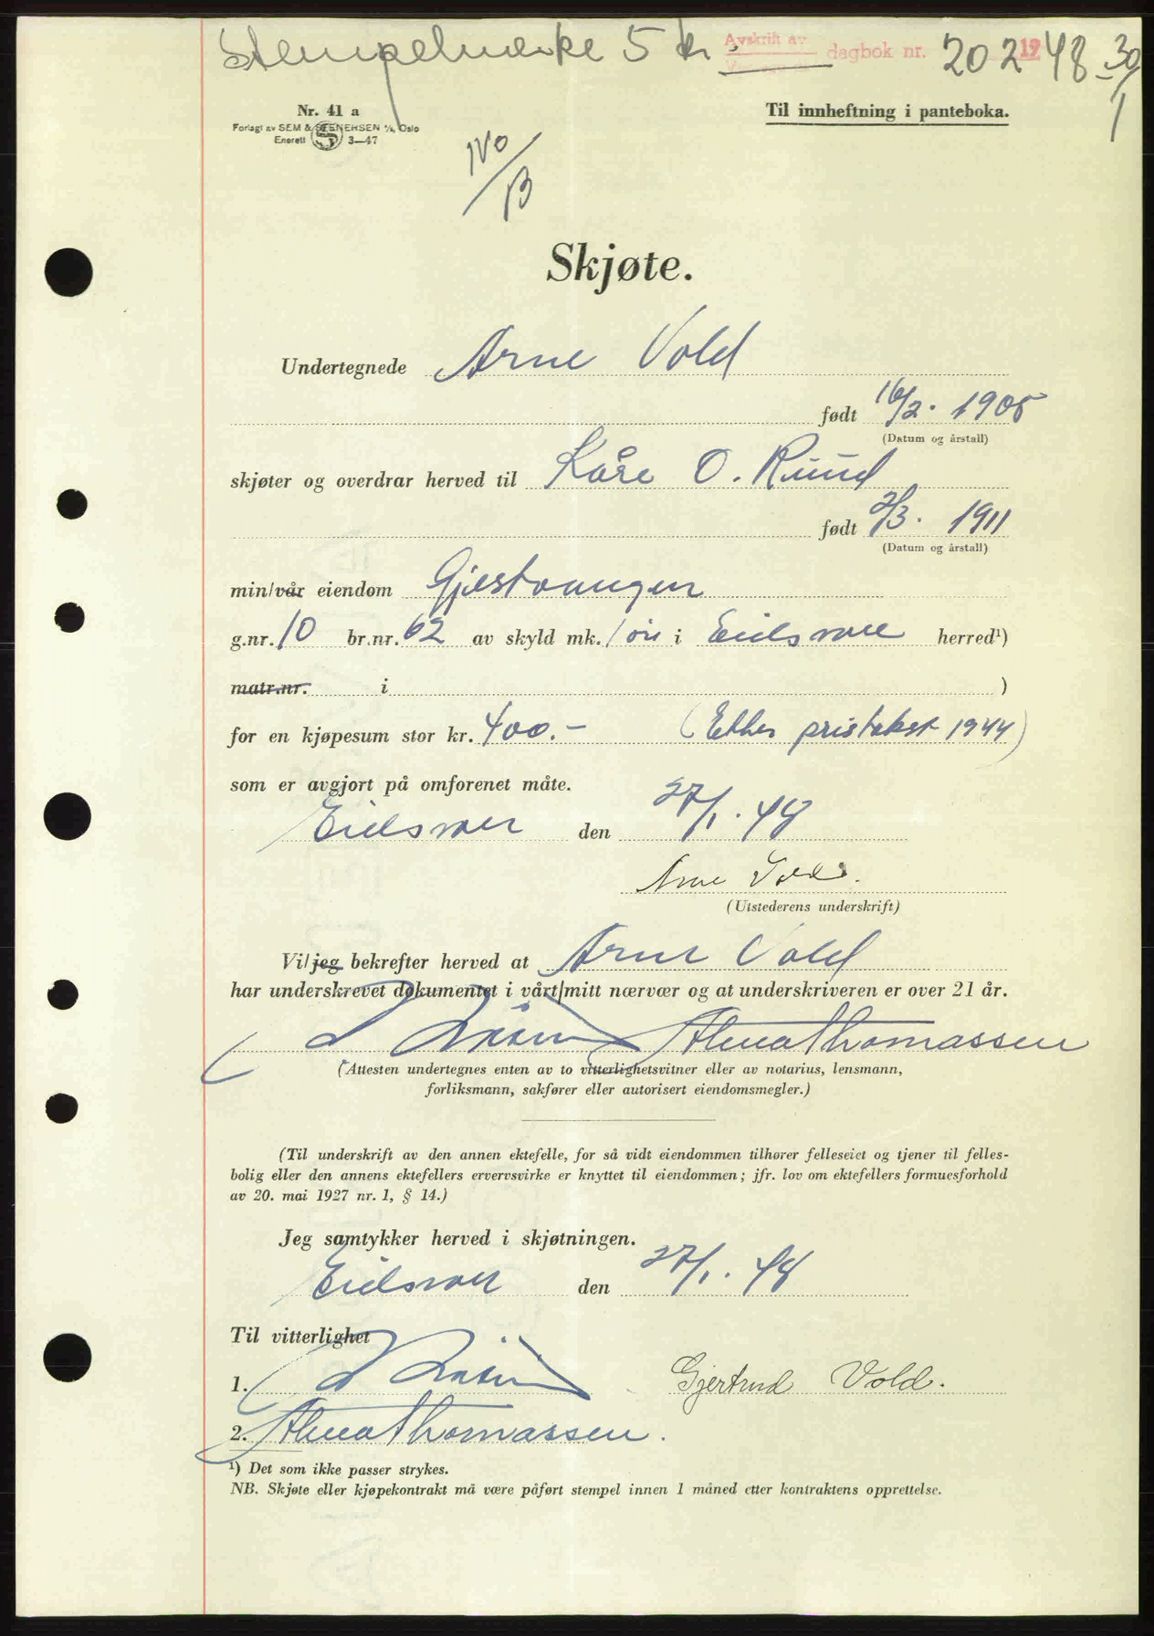 Stempelmerke 5 kr. Avskrift av dagbok nr. 202 1948 - 30/1
Nr. 41 a
Til innheftning i panteboka.
Forlagt av SEM & STENERSEN A/s, Oslo
Enerett S 3—47
Skjøte.
Undertegnede Arne Vold
født 16/2. 1905
(Datum og årstall)
skjøter og overdrar herved til Kåre O. Ruud
født 2/3. 1911
(Datum og årstall)
min/vår eiendom Gjestvangen
g.nr. 10 br.nr. 62 av skyld mk. 1 øre i Eidsvoll herred¹)
matr.nr. i )
for en kjøpesum stor kr. 400.- (Etter pristakst 1944)
som er avgjort på omforenet måte.
Eidsvoll den 27/1. 48
Arne Vold.
(Utstederens underskrift)
Vi/jeg bekrefter herved at Arne Vold
har underskrevet dokumentet i vårt/mitt nærvær og at underskriveren er over 21 år.
Alma Thomassen
(Attesten undertegnes enten av to vitterlighetsvitner eller av notarius, lensmann,
forliksmann, sakfører eller autorisert eiendomsmegler.)
(Til underskrift av den annen ektefelle, for så vidt eiendommen tilhører felleseiet og tjener til felles-
bolig eller den annens ektefellers ervervsvirke er knyttet til eiendommen; jfr. lov om ektefellers formuesforhold
av 20. mai 1927 nr. 1, § 14.)
Jeg samtykker herved i skjøtningen.
Eidsvoll den 27/1. 48
Til vitterlighet
1. Gjertrud Vold.
2. Alma Thomassen.
¹) Det som ikke passer strykes.
NB. Skjøte eller kjøpekontrakt må være påført stempel innen 1 måned etter kontraktens opprettelse.